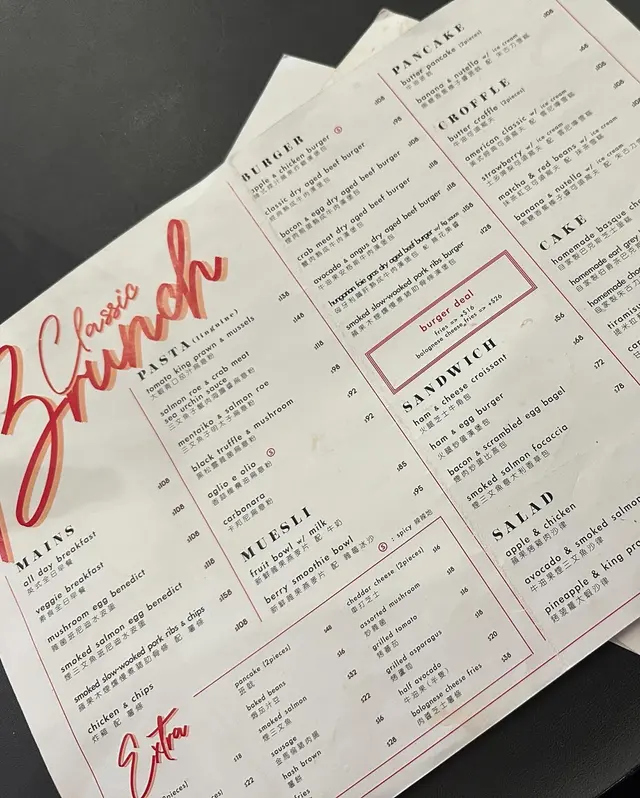 Classic
Brunch
MAINS
all day breakfast
英式全日早餐
$108
veggie breakfast
素食全日早餐
$108
mushroom egg benedict
雜菌班尼迪水波蛋
$108
smoked salmon egg benedict
煙三文魚班尼迪水波蛋
$118
smoked slow-wooked pork ribs & chips
蘋果木煙燻慢煮豬肋骨 配 薯條
$158
chicken & chips
炸雞 配 薯條
$108
PASTA (linguine)
tomato king prawn & mussels
$138
salmon roe & crab meat
sea urchin sauce
$148
mentaiko & salmon roe
三文魚子明太子扁意粉
$118
black truffle & mushroom
黑松露雜菌扁意粉
$98
aglio e olio Ⓢ
香蒜橄欖油扁意粉
$92
carbonara
卡邦尼扁意粉
$92
MUESLI
fruit bowl w/ milk
新鮮雜果燕麥片 配 牛奶
$85
berry smoothie bowl
新鮮雜果燕麥片 配 雜莓冰沙
$95
Ⓢ : spicy 辣辣地
BURGER
apple & chicken burger Ⓢ
$108
classic dry aged beef burger
經典熟成牛肉漢堡包
$98
bacon & egg dry aged beef burger
煙肉煎蛋熟成牛肉漢堡包
$108
crab meat dry aged beef burger
蟹肉熟成牛肉漢堡包
$108
avocado & angus dry aged beef burger
牛油果安格斯牛肉漢堡包
$118
hungarian foie gras dry aged beef burger w/ fig sauce
匈牙利鴨肝熟成牛肉漢堡包 配 無花果醬
$158
smoked slow-wooked pork ribs burger
蘋果木煙燻慢煮豬肋骨漢堡包
$128
burger deal
fries => +$16
bolognese cheese fries => +$26
SANDWICH
ham & cheese croissant
火腿芝士牛角包
$56
ham & egg burger
火腿炒蛋漢堡包
bacon & scrambled egg bagel
煙肉炒蛋比高包
$72
smoked salmon focaccia
煙三文魚意大利香草包
$78
SALAD
apple & chicken
蘋果烤雞肉沙律
avocado & smoked salmon
牛油果煙三文魚沙律
pineapple & king pra
烤菠蘿大蝦沙律
PANCAKE
butter pancake (2pieces)
牛油班戟
$108
banana & nutella w/ ice cream
焦糖香蕉榛子醬班戟 配 朱古力雪糕
CROFFLE
butter croffle (2pieces)
牛油可頌窩夫
$68
american classic w/ ice cream
$108
strawberry w/ ice cream
matcha & red beans w/ ice cream
抹茶紅豆可頌窩夫 配 抹茶雪糕
banana & nutella w/ ice cream
CAKE
homemade basque ch
homemade earl grey
homemade ch
tiramisu
Extra
pancake (2pieces)
班戟
$48
baked beans
焗茄汁豆
$16
smoked salmon
煙三文魚
$32
sausage
金馬倫豬肉腸
$22
hash brown
薯餅
$16
fries
$28
cheddar cheese (2pieces)
車打芝士
$16
assorted mushroom
炒雜菌
$18
grilled tomato
烤番茄
$16
grilled asparagus
烤蘆筍
$18
half avocado
牛油果(半隻)
$20
bolognese cheese fries
肉醬芝士薯條
$38
$18
$22